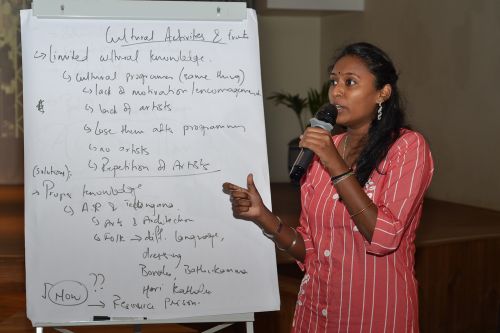 Cultural Activities &
→ Limited cultural knowledge.
↳ Cultural programmes (same thing)
↳ lack of motivation/encouragement
↳ lack of artists
↳ Lose them after programming
↳ no artists
↳ Repetition of Artists
(solutions):
→ Proper knowledge
↳ A.P & Telangana
↳ Arts & Architecture
↳ Folk → diff. language,
dressing
Bonalu, Bathukamma
Hari Katha
How ??
→ Resource Person.